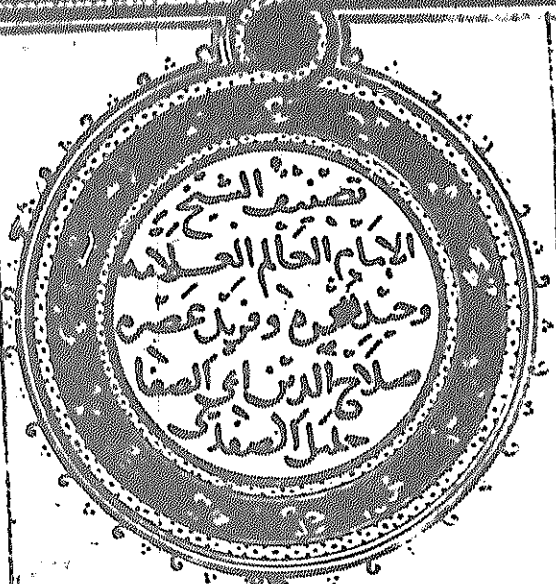 تصنيف الشيخ
الامام العالم العلامه
وحيد دهره وفريد عصره
صلاح الدين ابي الصفا
خليل الصفدي